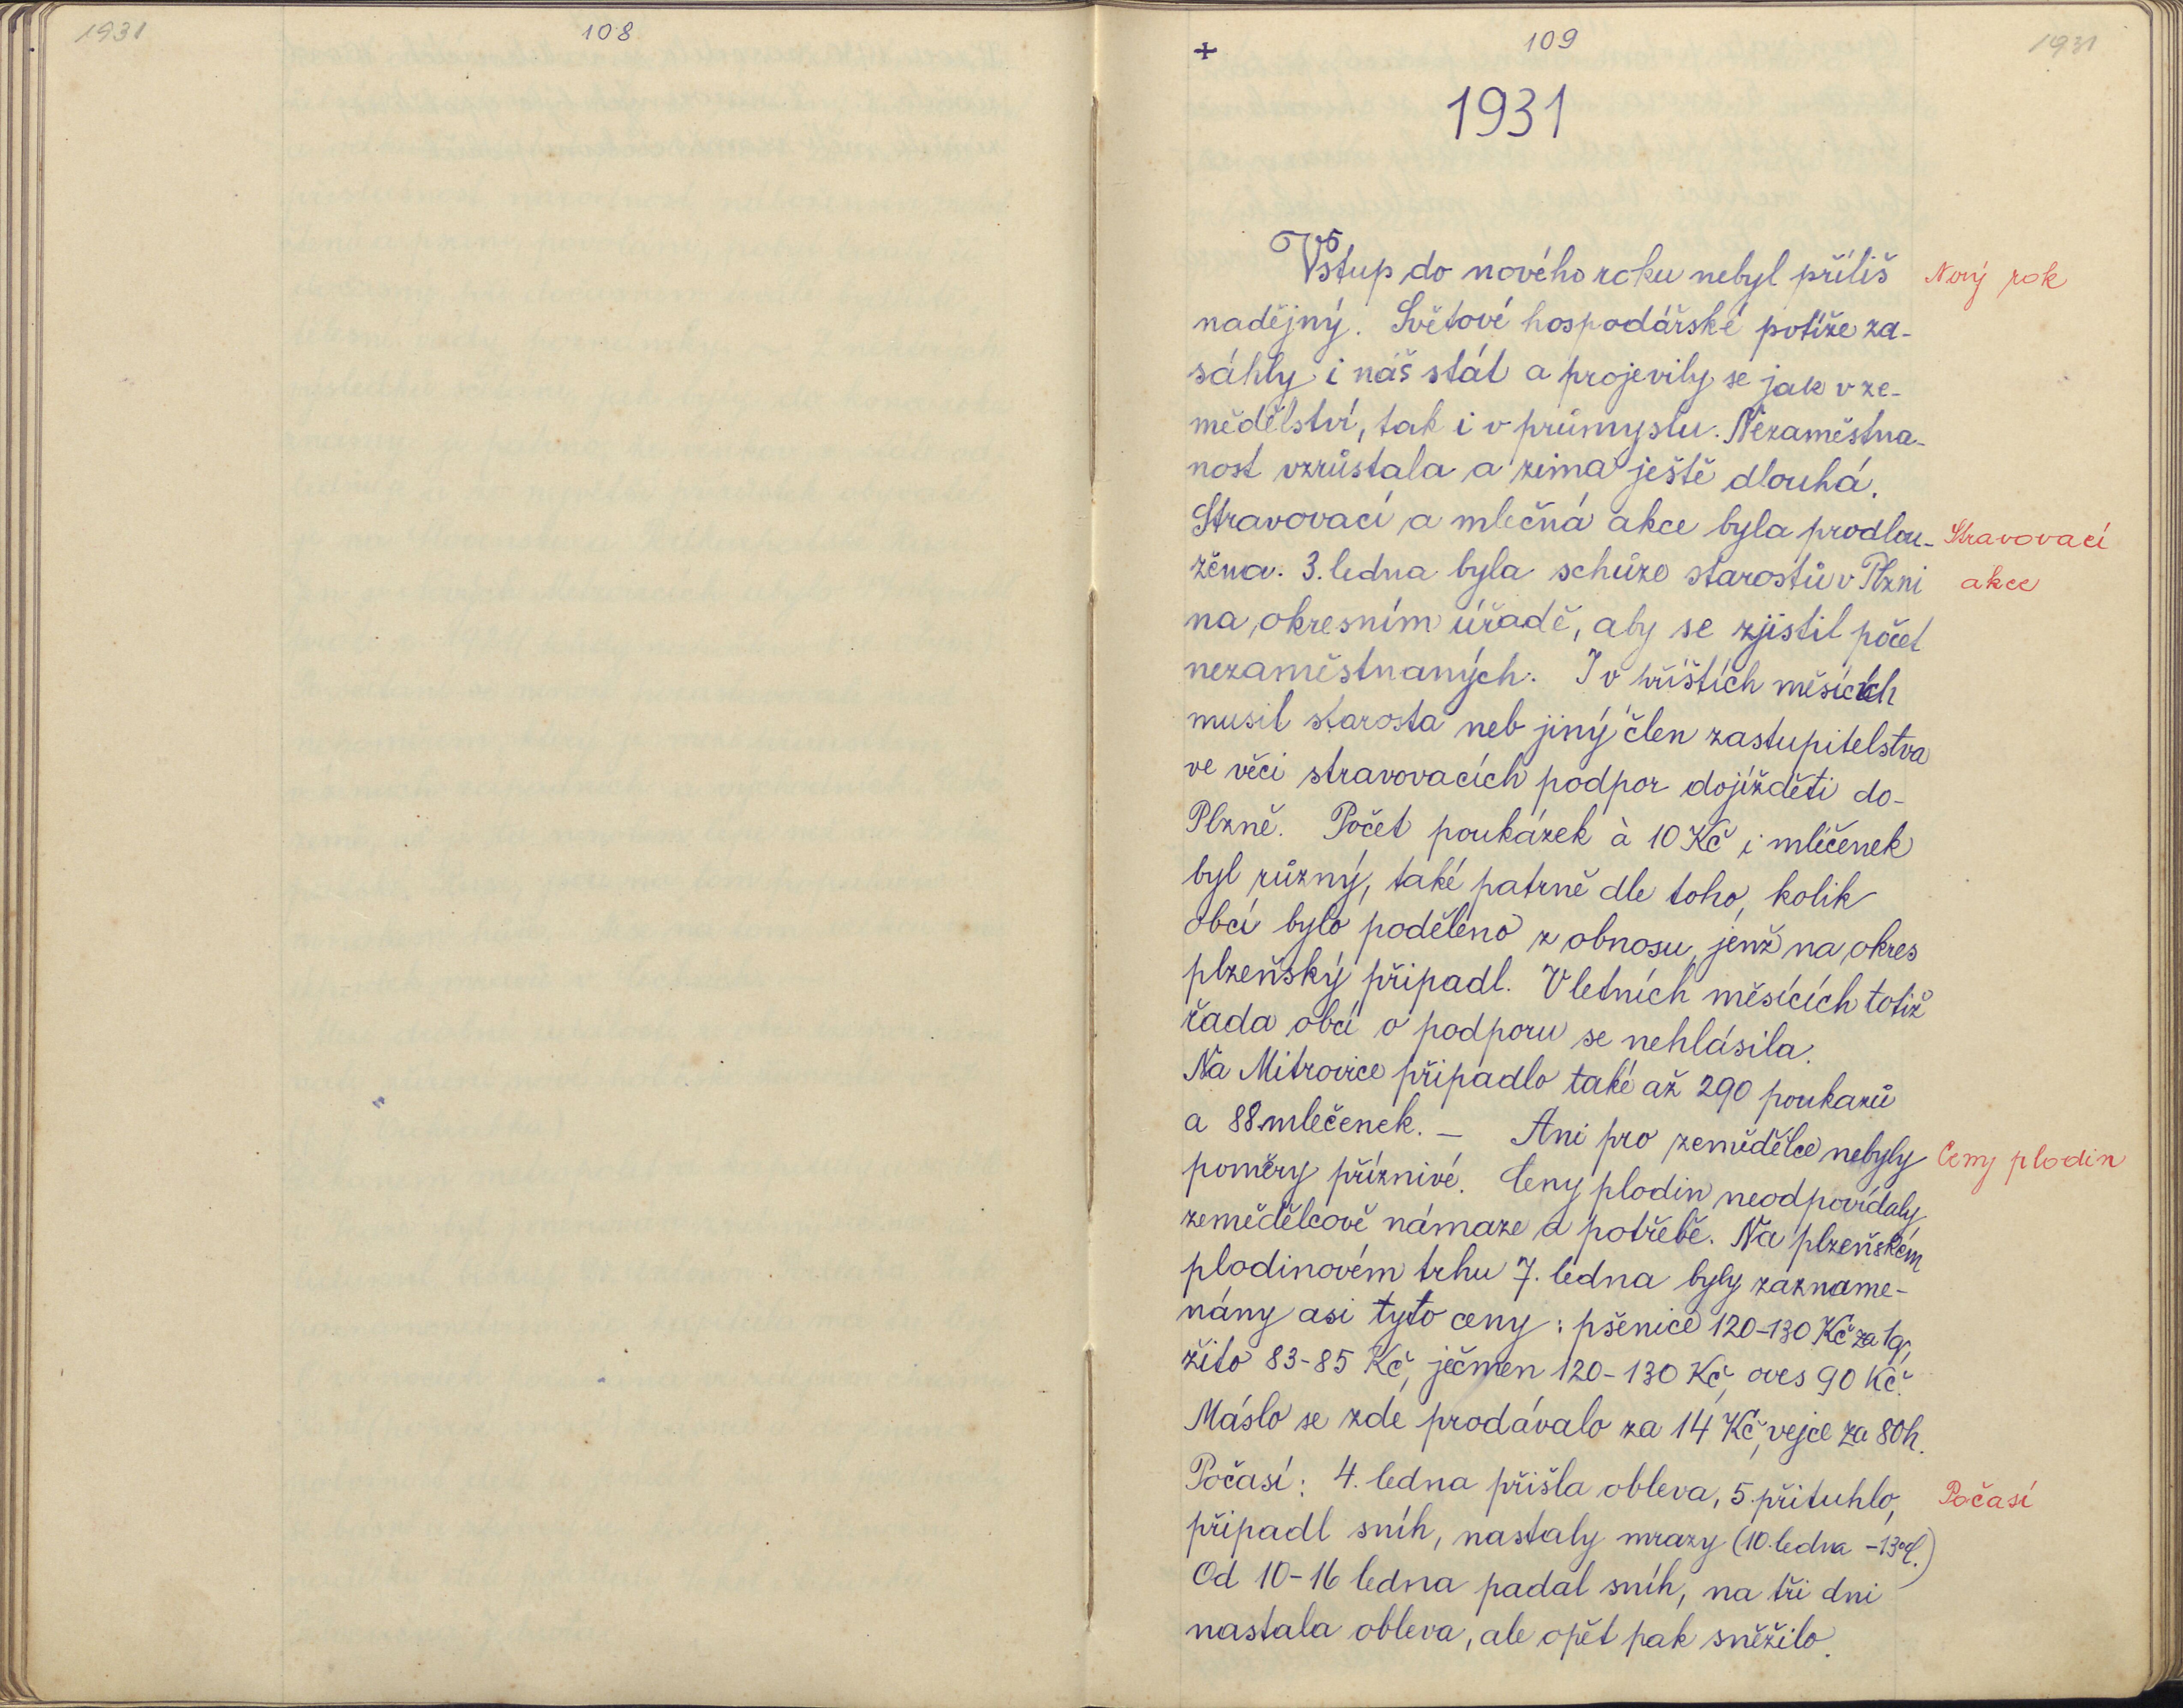 1931
108
109
1931
+
1931
Vstup do nového roku nebyl příliš
Nový rok
nadějný. Světové hospodářské potíže za-
sáhly i náš stát a projevily se jak v ze-
mědělství, tak i v průmyslu. Nezaměstna-
nost vzrůstala a zima ještě dlouhá.
Stravovací a mlečná akce byla prodlou-
Stravovací
žena. 3. ledna byla schůze starostů v Plzni
akce
na okresním úřadě, aby se zjistil počet
nezaměstnaných. I v příštích měsících
musil starosta neb jiný člen zastupitelstva
ve věci stravovacích podpor dojížděti do
Plzně. Počet poukázek à 10 Kč i mlečenek
byl různý, také patrně dle toho, kolik
obcí bylo poděleno z obnosu, jenž na okres
plzeňský připadl. V letních měsících totiž
řada obcí o podporu se nehlásila.
Na Mitrovice připadlo také až 290 poukazů
a 88 mlečenek. — Ani pro zemědělce nebyly
Ceny plodin
poměry příznivé. Ceny plodin neodpovídaly
zemědělcově námaze a potřebě. Na plzeňském
plodinovém trhu 7. ledna byly zazname-
nány asi tyto ceny: pšenice 120-130 Kč za 1q,
žito 83-85 Kč, ječmen 120-130 Kč, oves 90 Kč.
Máslo se zde prodávalo za 14 Kč, vejce za 80h.
Počasí: 4. ledna přišla obleva, 5. přituhlo,
Počasí
připadl sníh, nastaly mrazy (10. ledna -13°C.)
Od 10-16 ledna padal sníh, na tři dni
nastala obleva, ale opět pak sněžilo.